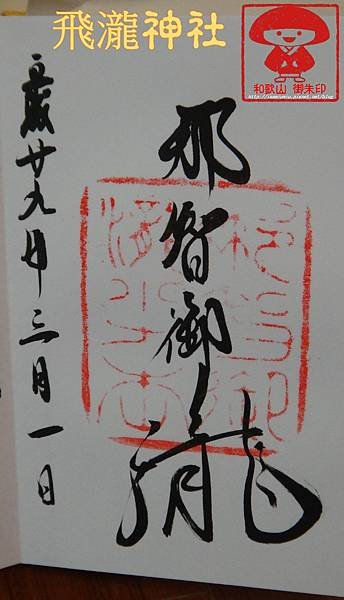 飛瀧神社
和歌山 御朱印
那智御瀧
平成廿九年三月一日